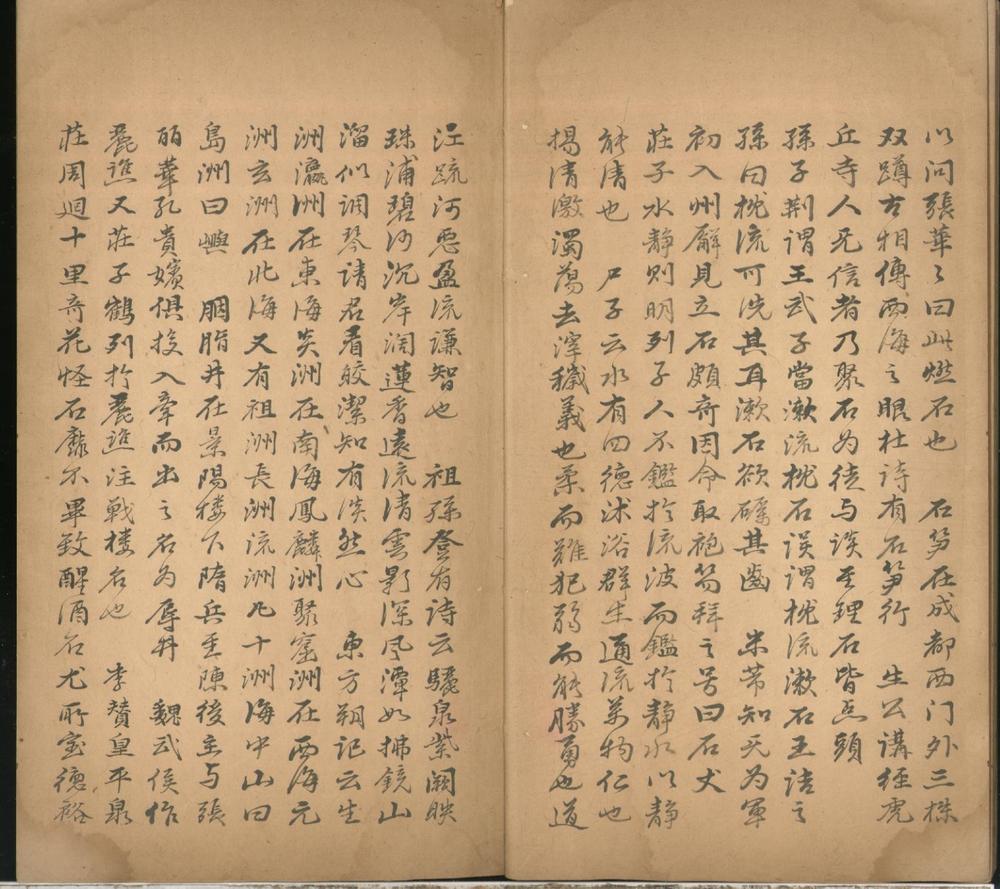 以问張華〻曰此燃石也　石笋在成都西门外三株
双蹲古相傳西海之眼杜诗有石笋行　生公講經虎
丘寺人无信者乃聚石为徒与谈至理石皆点頭
孫子荆谓王武子當漱流枕石误谓枕流漱石王诘之
孫曰枕流可洗其耳漱石欲礪其齒　米芾知无为軍
初入州廨見立石頗奇因命取袍笏拜之号曰石丈
莊子水静则明列子人不鑑於流波而鑑於静水以静
能清也　尸子云水有四德沐浴群生通流萬物仁也
揚清激濁荡去滓穢義也柔而難犯弱而能勝勇也道
江疏河恶盈流谦智也　祖孫登有诗云驪泉紫阙映
珠浦碧沙沉岸阔蓮香遠流清雲影深风潭如拂鏡山
溜似调琴请君看皎潔知有淡然心　東方朔记云生
洲瀛洲在東海炎洲在南海鳳麟洲聚窟洲在西海元
洲玄洲在北海又有祖洲長洲流洲凡十洲海中山曰
島洲曰嶼　胭脂井在景陽楼下隋兵至陳後主与張
丽華孔貴嬪俱投入牵而出之名为辱井　魏武侯作
麗譙又莊子鶴列於麗譙注戰楼名也　李赞皇平泉
莊周迴十里奇花怪石靡不畢致醒酒石尤所宝德裕